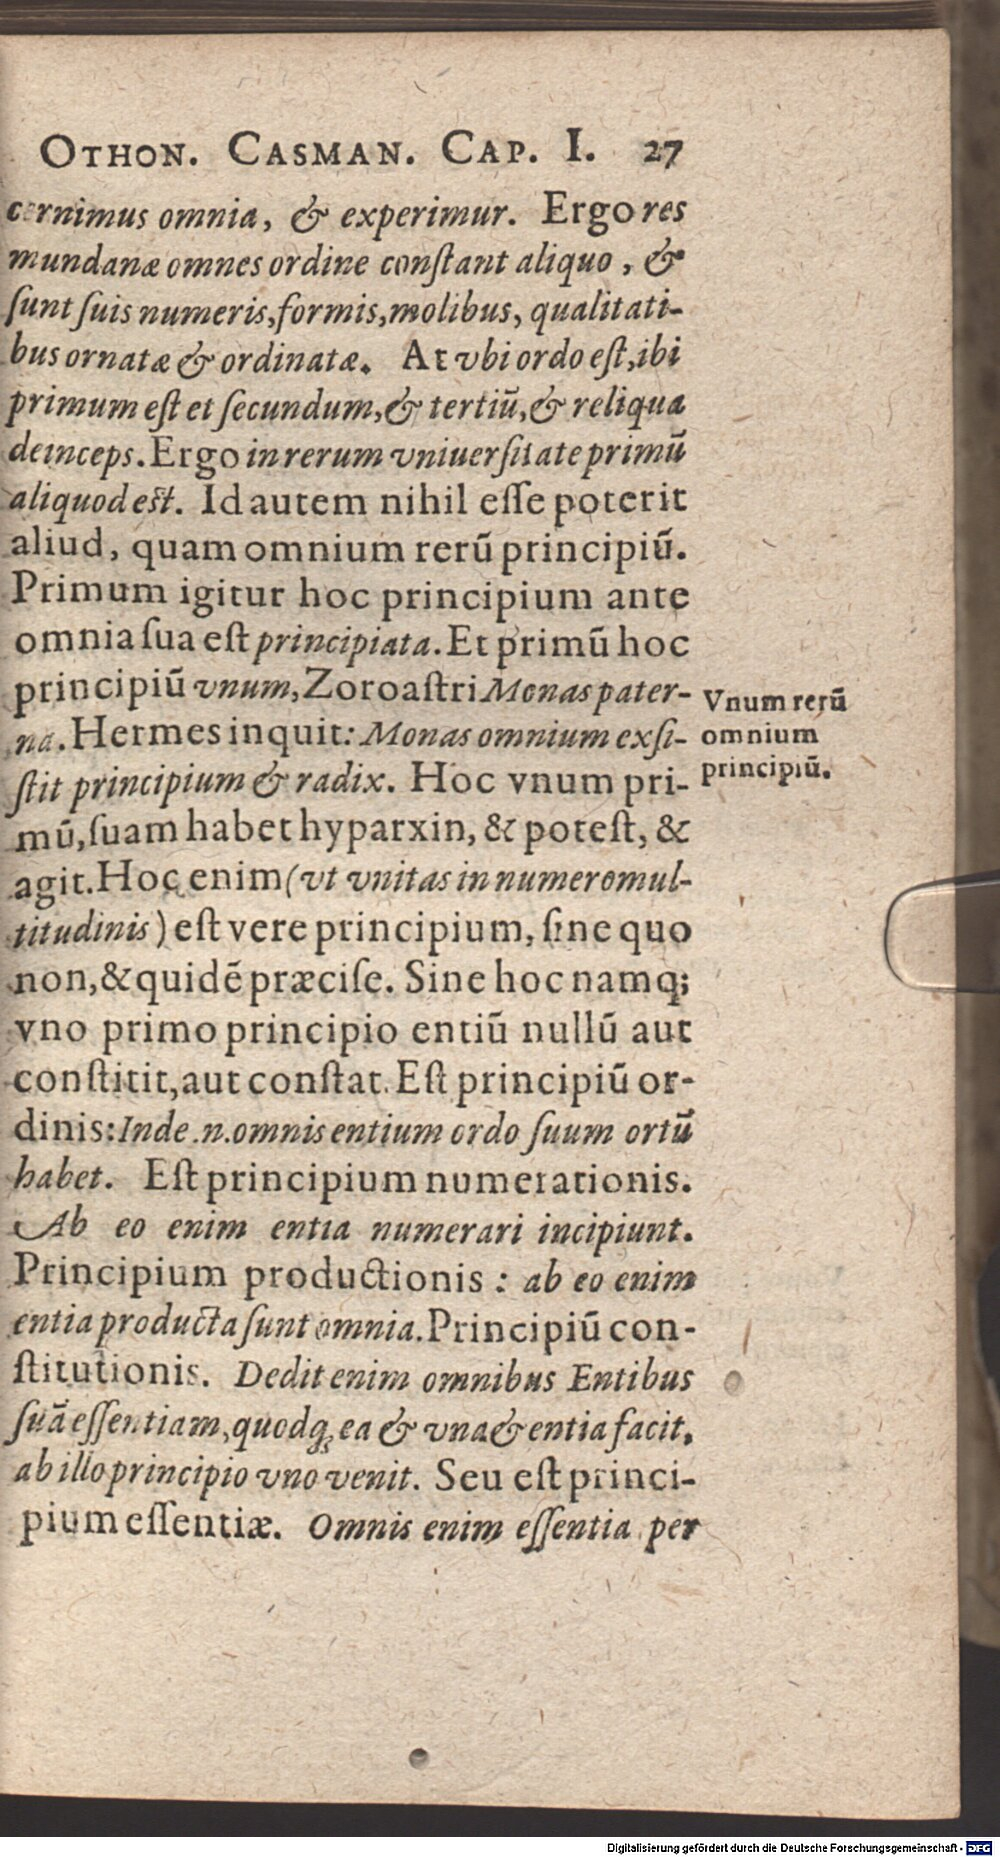 OTHON. CASMAN. CAP. I. 27
cernimus omnia, & experimur. Ergo res
mundanæ omnes ordine conſtant aliquo, &
ſunt ſuis numeris, formis, molibus, qualitati-
bus ornatæ & ordinatæ. At vbi ordo eſt, ibi
primum eſt et ſecundum, & tertiũ, & reliqua
deinceps. Ergo in rerum vniuerſitate primũ
aliquod eſt. Id autem nihil eſſe poterit
aliud, quam omnium rerũ principiũ.
Primum igitur hoc principium ante
omnia ſua eſt principiata. Et primũ hoc
principiũ vnum, Zoroaſtri Monas pater-
na. Hermes inquit: Monas omnium exſi-
ſtit principium & radix. Hoc vnum pri-
mũ, ſuam habet hyparxin, & poteſt, &
agit. Hoc enim (vt vnitas in numero mul-
titudinis) eſt vere principium, ſine quo
non, & quidẽ præciſe. Sine hoc namq;
vno primo principio entiũ nullũ aut
conſtitit, aut conſtat. Eſt principiũ or-
dinis: Inde .n. omnis entium ordo ſuum ortũ
habet. Eſt principium numerationis.
Ab eo enim entia numerari incipiunt.
Principium productionis: ab eo enim
entia producta ſunt omnia. Principiũ con-
ſtitutionis. Dedit enim omnibus Entibus
ſuã eſſentiam, quodq; ea & vna & entia facit,
ab illo principio vno venit. Seu eſt princi-
pium eſſentiæ. Omnis enim eſſentia per
Vnum rerũ
omnium
principiũ.
Digitalisierung gefördert durch die Deutsche Forschungsgemeinschaft - DFG